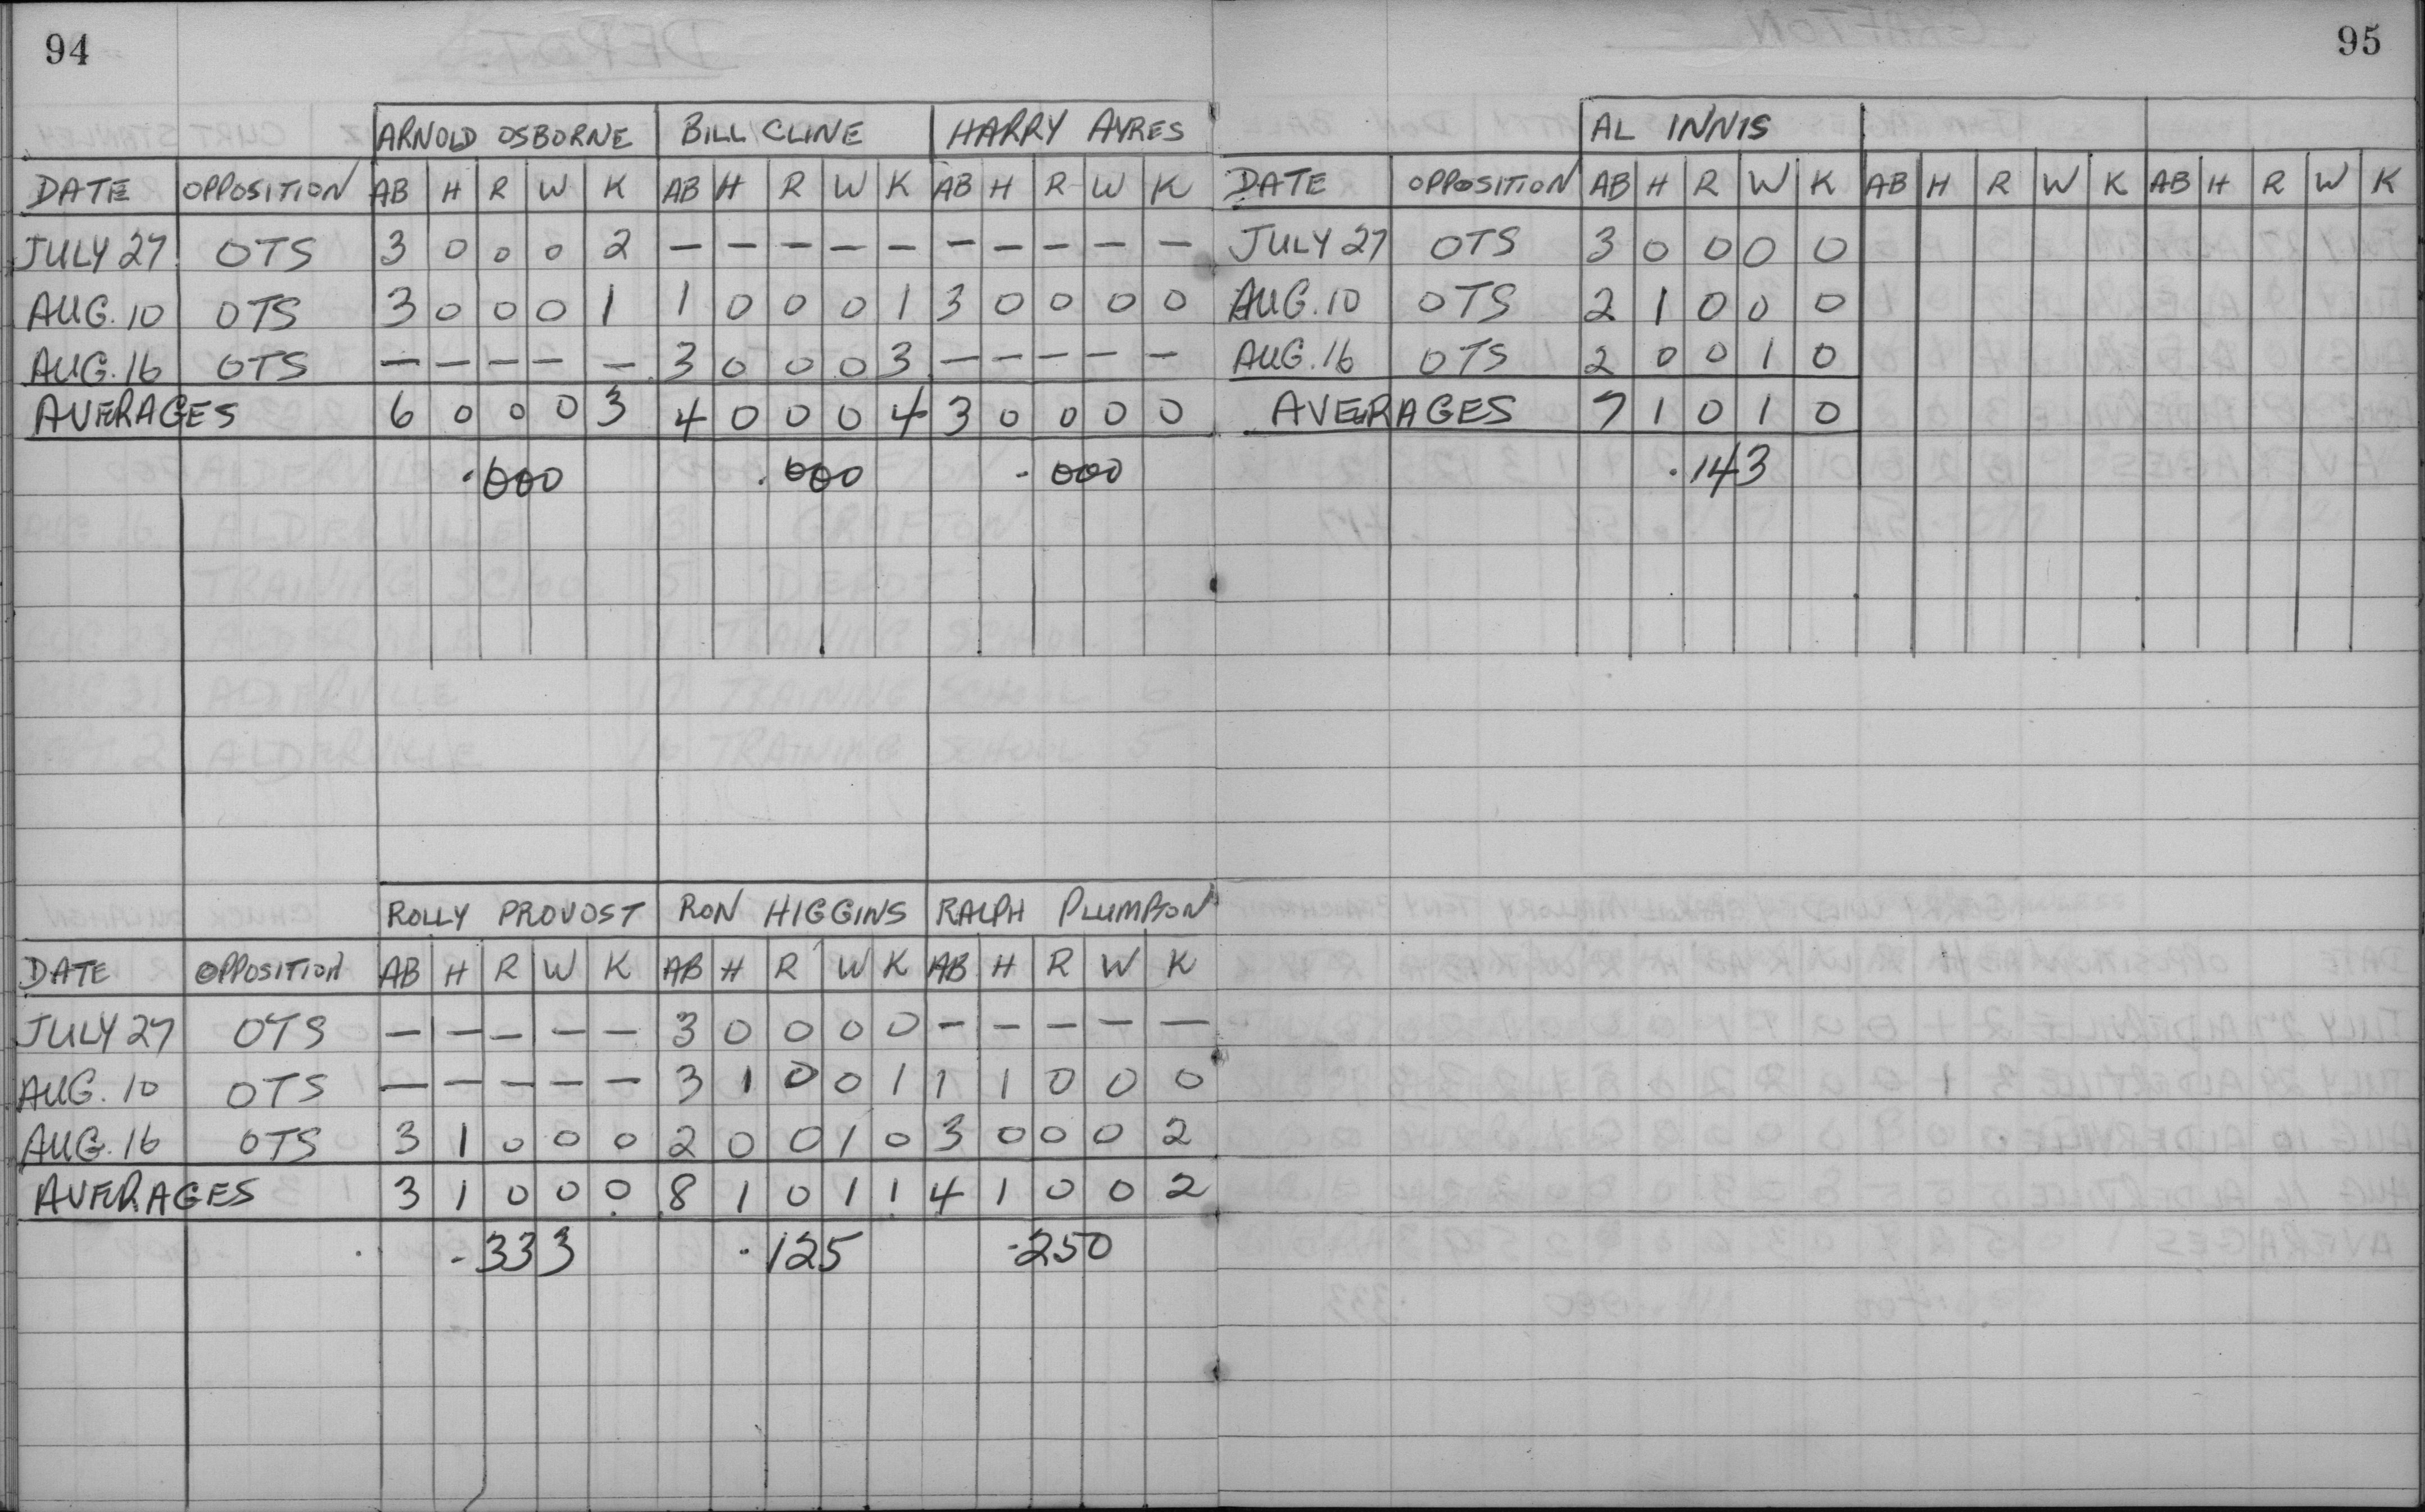 94
ARNOLD OSBORNE BILL CLINE HARRY AYRES
DATE OPPOSITION AB H R W K AB H R W K AB H R W K
JULY 27 OTS 3 0 0 0 2 — — — — — — — — — —
AUG. 10 OTS 3 0 0 0 1 1 0 0 0 1 3 0 0 0 0
AUG. 16 OTS — — — — — 3 0 0 0 3 — — — — —
AVERAGES 6 0 0 0 3 4 0 0 0 4 3 0 0 0 0
.000 .000 .000
ROLLY PROVOST RON HIGGINS RALPH PLUMPTON
DATE OPPOSITION AB H R W K AB H R W K AB H R W K
JULY 27 OTS — — — — — 3 0 0 0 0 — — — — —
AUG. 10 OTS — — — — — 3 1 0 0 1 1 1 0 0 0
AUG. 16 OTS 3 1 0 0 0 2 0 0 1 0 3 0 0 0 2
AVERAGES 3 1 0 0 0 8 1 0 1 1 4 1 0 0 2
.333 .125 .250
95
AL INNIS
DATE OPPOSITION AB H R W K AB H R W K AB H R W K
JULY 27 OTS 3 0 0 0 0
AUG. 10 OTS 2 1 0 0 0
AUG. 16 OTS 2 0 0 1 0
AVERAGES 7 1 0 1 0
.143